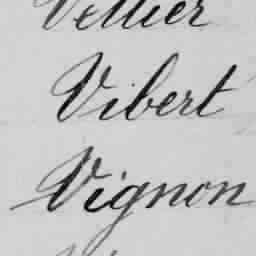 Vellier
Vibert
Vignon